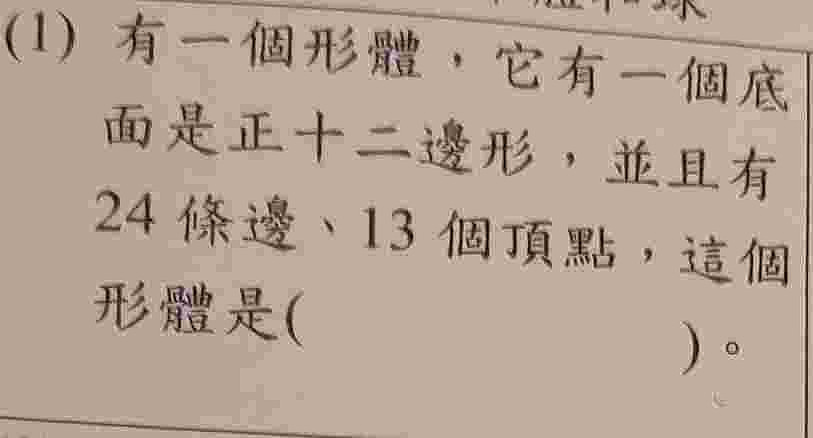 (1) 有一個形體，它有一個底
面是正十二邊形，並且有
24 條邊、13 個頂點，這個
形體是(                    )。